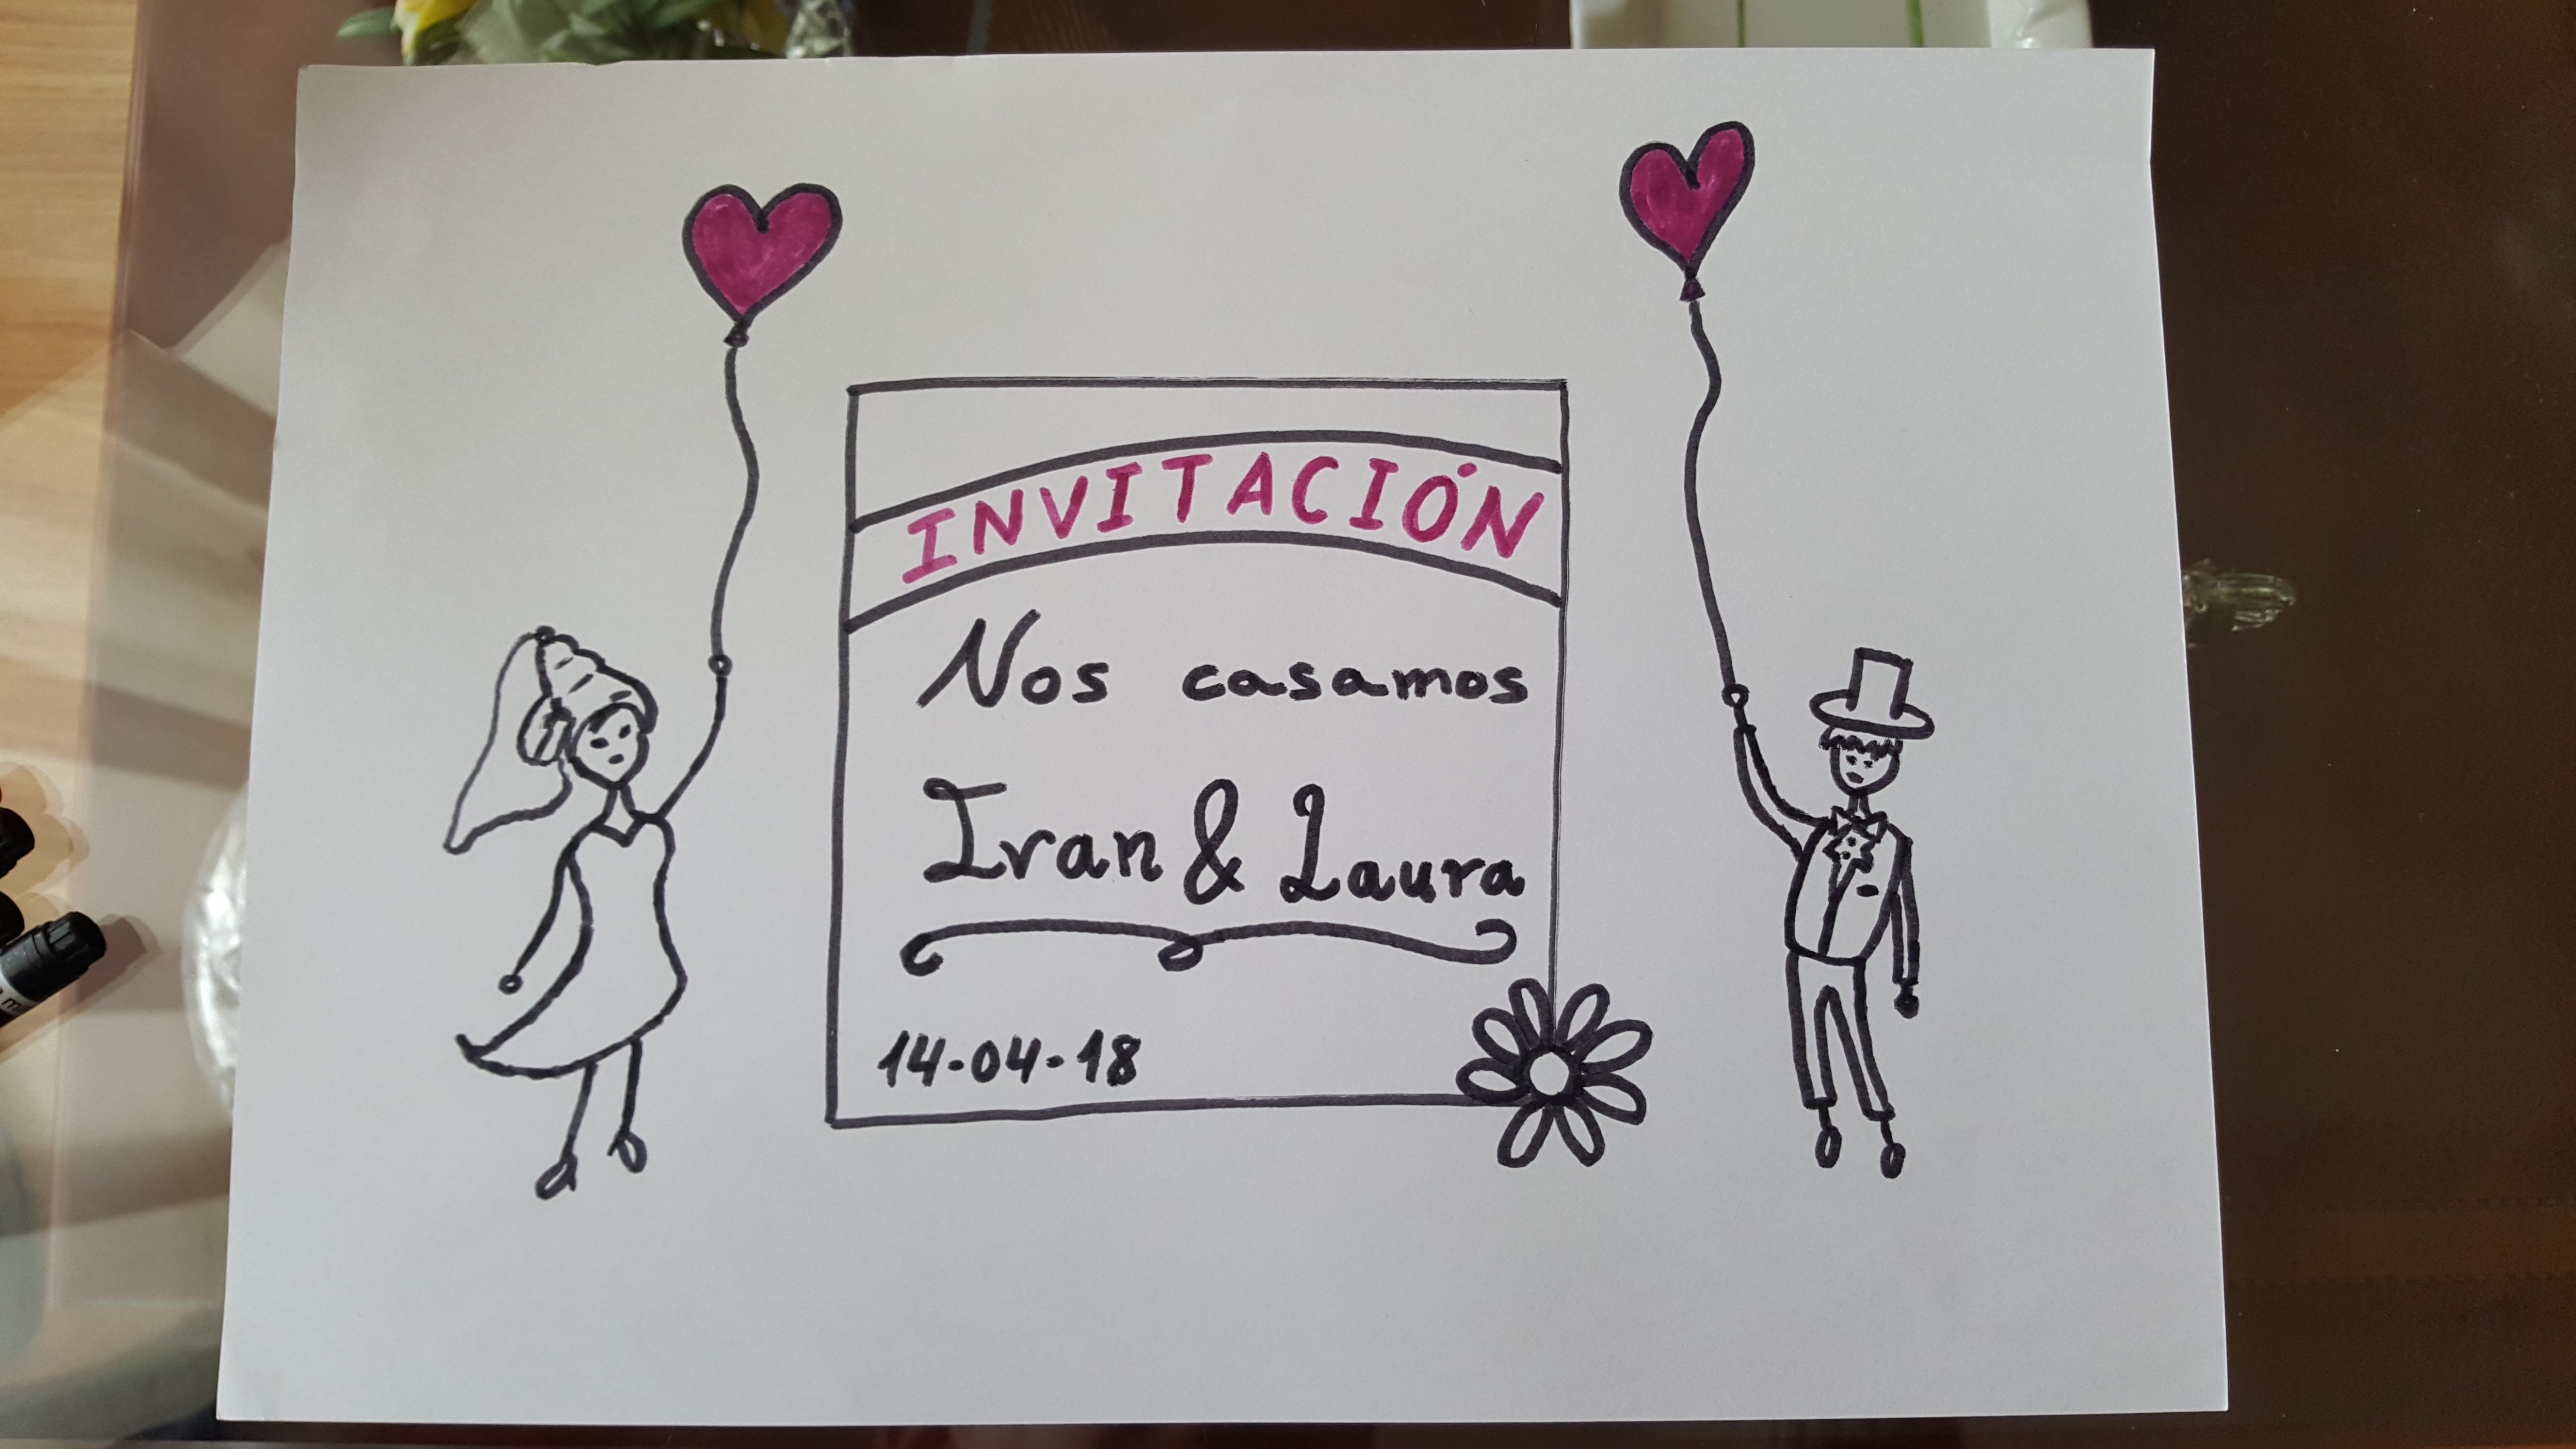 INVITACIÓN
Nos casamos
Ivan & Laura
14-04-18